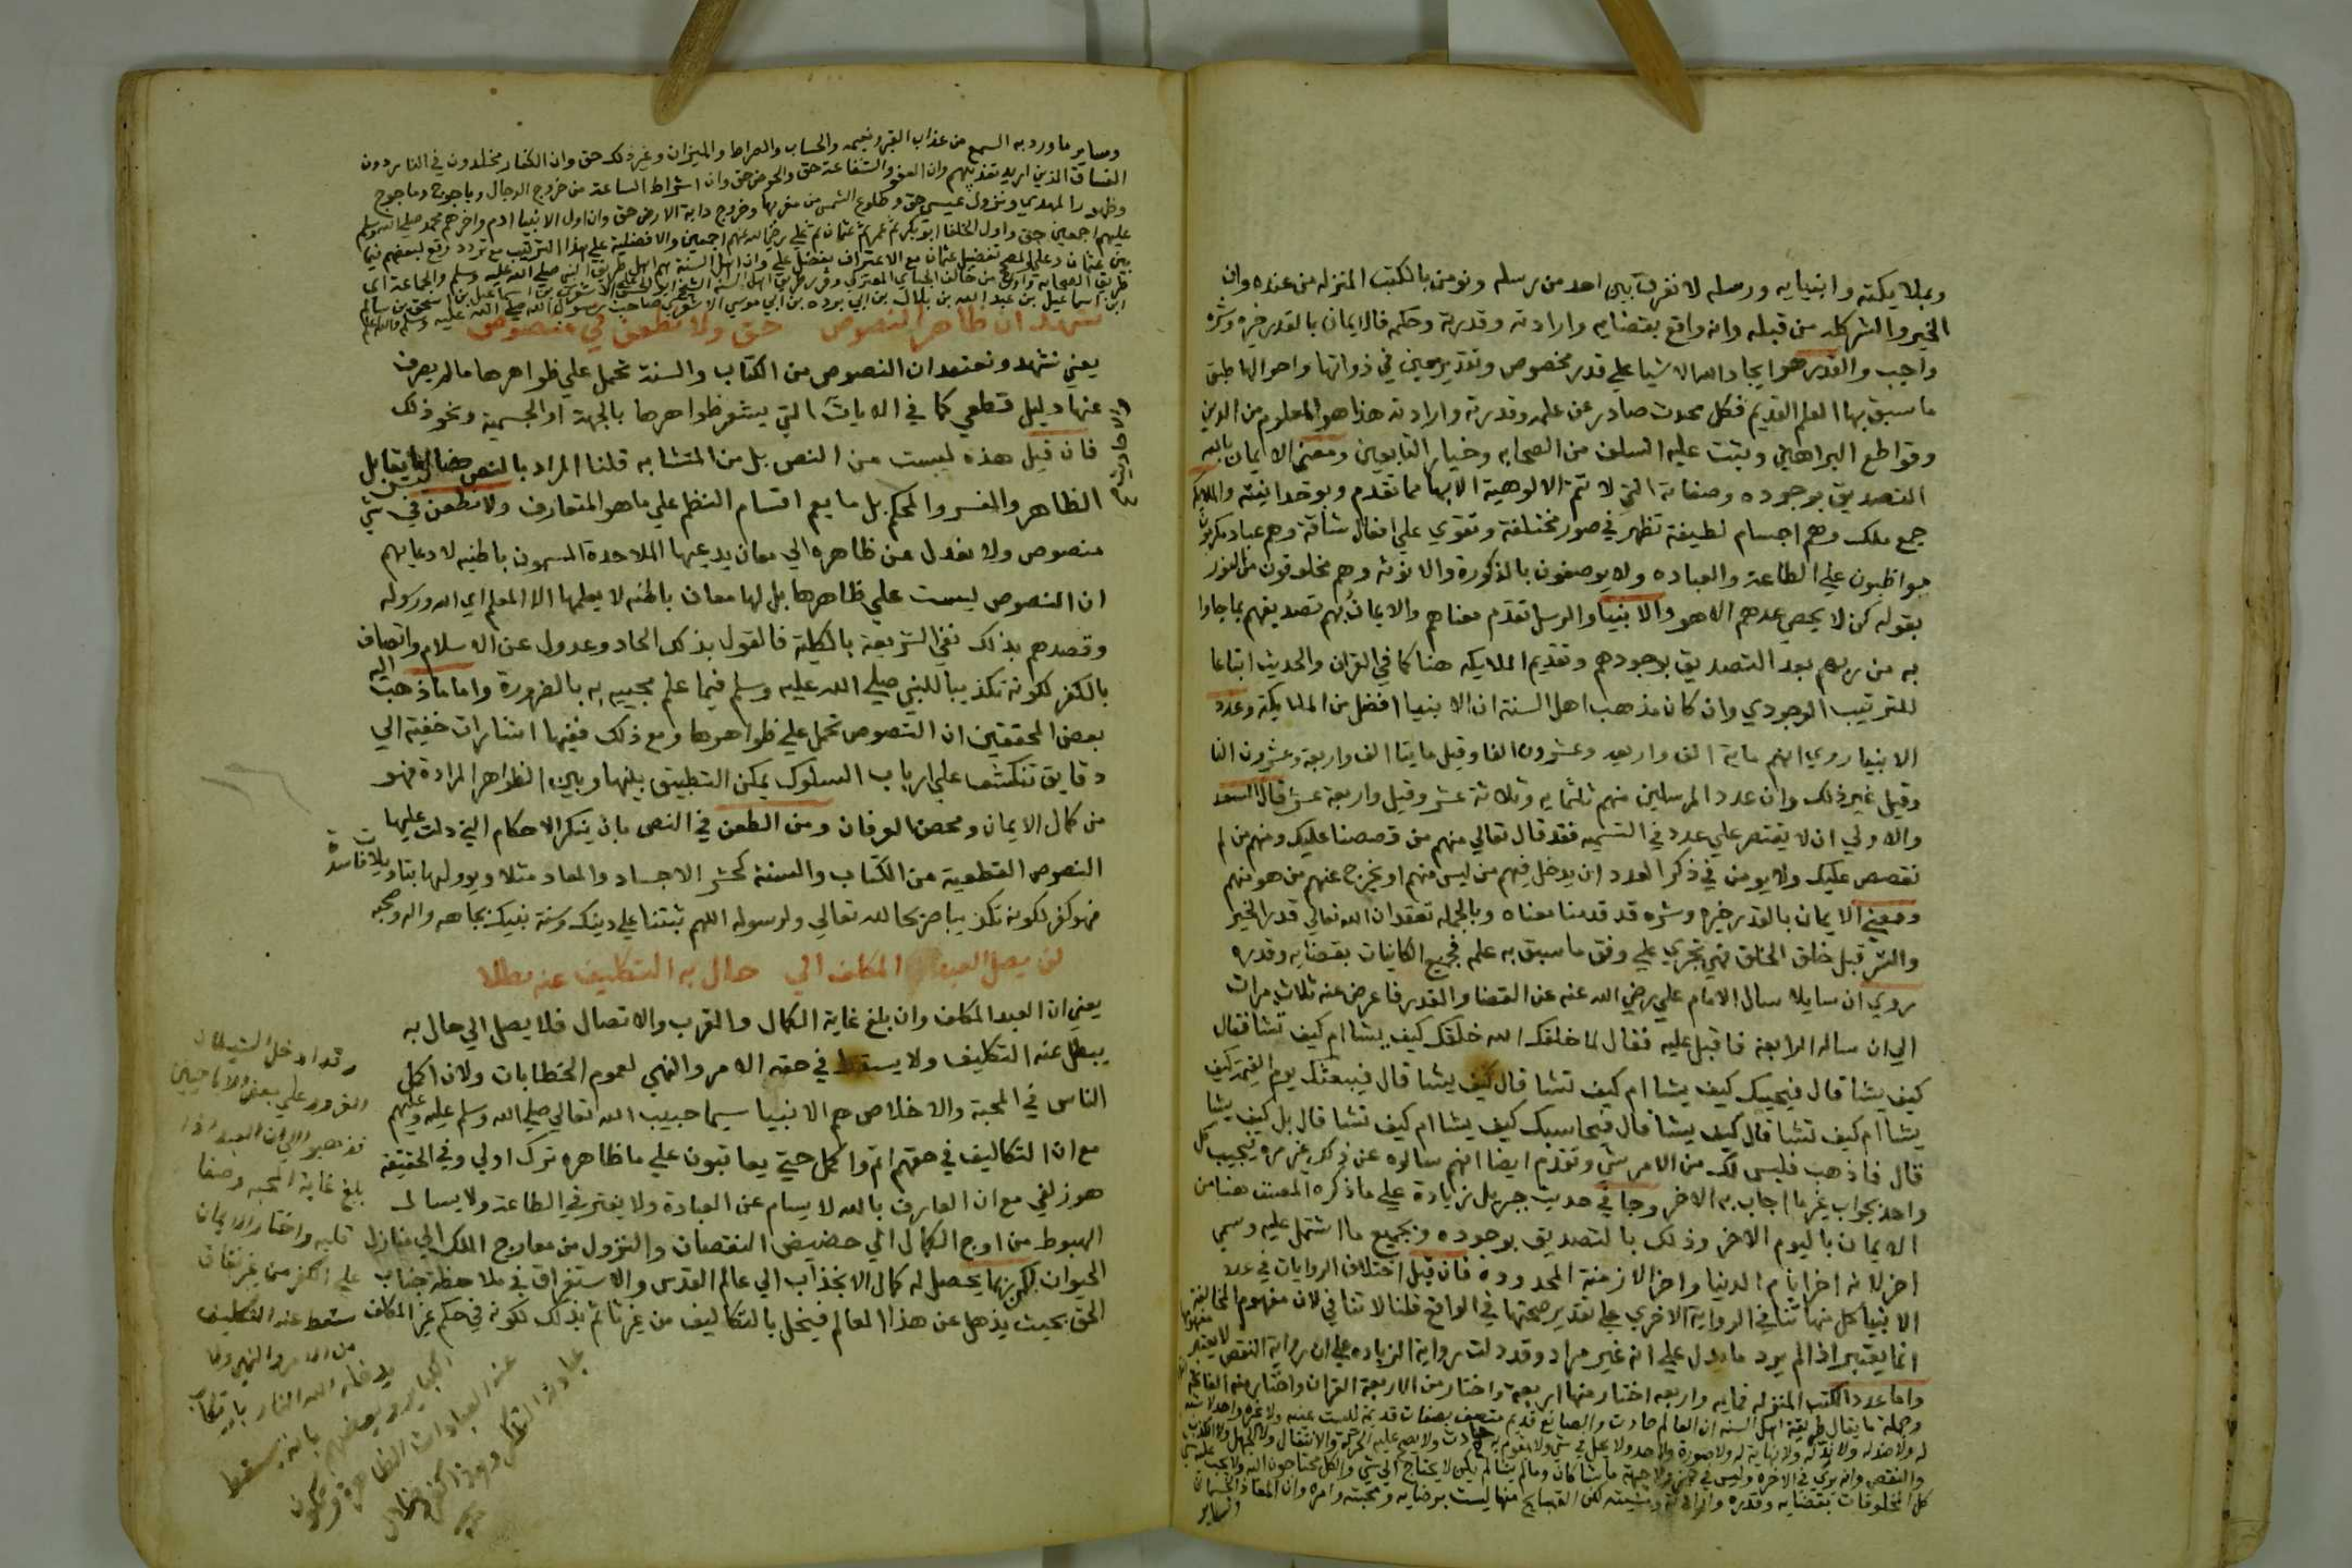 وبملايكته وانبيايه ورسله لا نفرق بين احد من رسله ونومن بالكتب المنزله من عنده وان
الخير والشر كله من قبله وانه واقع بقضايه وارادته وقدرته وحكمه فالايمان بالقدر خيره وشره
واجب والقدر هو ايجاد الله الاشيا علي قدر مخصوص وتقدير معين في ذواتها واحوالها طبق
ما سبق بها العلم القديم فكل محدث صادر عن علمه وقدرته وارادته هذا هو المعلوم من الدين
وقواطع البراهين وبتت عليه السلف من الصحابه وخيار التابعين ومعني الايمان بالله
التصديق بوجوده وصفاته التي لا تتم الالوهية الا بها مما تقدم وبوحدانيته والملايكه
جمع ملك وهم اجسام لطيفة تظهر في صور مختلفة وتقوي علي افعال شاقة وهم عباد مكرمون
مواظبون علي الطاعة والعباده ولا يوصفون بالذكورة والانوثه وهم مخلوقون من النور
بقوله كن لا يحصي عددهم الا هو والانبيا والرسل تقدم معناهم والايمان بهم تصديقهم بما جاوا
به من ربهم بعد التصديق بوجودهم وتقديم الملايكه هنا كما في القران والحديث اتباعا
للترتيب الوجودي وان كان مذهب اهل السنة ان الانبيا افضل من الملايكة وعدد
الانبيا روي انهم ماية الف واربعه وعشرون الفا وقيل مايتا الف واربعة وعشرون الفا
وقيل غير ذلك وان عدد المرسلين منهم ثلثمايه وثلاثة عشر وقيل واربعة عشر قال السعد
والاولي ان لا يقتصر علي عدد في التسميه فقد قال تعالي منهم من قصصنا عليك ومنهم من لم
نقصص عليك ولا يومن في ذكر العدد ان يدخل فيهم من ليس منهم او يخرج عنهم من هو منهم
ومعني الايمان بالقدر خيره وشره قد قدمنا معناه وبالجمله نعتقد ان الله تعالي قدر الخير
والشر قبل خلق الخلق فهي تجري علي وفق ما سبق به علمه فجميع الكاينات بقضايه وقدره
روي ان سايلا سال الامام علي رضي الله عنه عن القضا والقدر فاعرض عنه ثلاث مرات
الي ان ساله الرابعة فاقبل عليه فقال لما خلقك الله خلقك كيف يشا ام كيف تشا فقال
كيف يشا قال فيحييك كيف يشا ام كيف تشا قال كيف يشا قال فيبعثك يوم القيمة كيف
يشا ام كيف تشا قال كيف يشا قال فيحاسبك كيف يشا ام كيف تشا قال بل كيف يشا
قال فاذهب فليس لك من الامر شي وتقدم ايضا انهم سالوه عن ذلك غير مره فيجيب كل
واحد بجواب غير ما اجاب به الاخر وجا في حديث جبريل زيادة علي ما ذكره المصنف هنا من
الايمان باليوم الاخر وذلك بالتصديق بوجوده وبجميع ما اشتمل عليه وسمي
اخر لانه اخر ايام الدنيا واخر الازمنة المحدودة فان قيل اختلاف الروايات في عدد
الانبيا كل منها تنافي الرواية الاخري علي تقدير صحتها في الواقع قلنا لا تنافي لان مفهوم المخالفة
انما يعتبر اذا لم يرد ما يدل علي انه غير مراد وقد دلت رواية الزياده علي ان رواية النقص لا يعتبر مفهومها
واما عدد الكتب المنزله فمايه واربعه اختار منها اربعة واختار من الاربعة القران واختار منه الفاتحة
وجملة ما يقال طريقة اهل السنه ان العالم حادث والصانع قديم متصف بصفات قديمة ليست عينه ولا غيره واحد لا شبه
له ولا ضد له ولا ند له ولا نهاية له ولا صورة ولا حد ولا يحل في شي ولا يقوم به حادث ولا يصح عليه الحركة والانتقال ولا الجهل ولا الكذب
والنقص وانه يري في الاخره وليس في حيز ولا جهة ما شا كان وما لم يشا لم يكن لا يحتاج الي شي والكل محتاجون اليه ولا يجب عليه شي
كل المخلوقات بقضايه وقدره وارادته ومشيته لكن القبايح منها ليست برضايه ومحبته وامره وان المعاد الجسماني
وساير
وساير ما ورد به السمع من عذاب القبر ونعيمه والحساب والصراط والميزان وغير ذلك حق وان الكفار مخلدون في النار دون
الفساق الذين اريد تعذيبهم وان العفو والشفاعة حق والحوض حق وان اشراط الساعة من خروج الدجال وياجوج وماجوج
وظهور المهدي ونزول عيسي حق وطلوع الشمس من مغربها وخروج دابة الارض حق وان اول الانبيا ادم واخرهم محمد صلي الله عليه وسلم
عليهم اجمعين حق واول الخلفا ابو بكر ثم عمر ثم عثمان ثم علي رضي الله عنهم اجمعين والافضلية علي هذا الترتيب مع تردد وقع لبعضهم فيما
بين عثمان وعلي تفضيل عثمان مع الاعتراف بفضل علي وان اهل السنة هم اهل طريقة النبي صلي الله عليه وسلم والجماعة اي
طريق الصحابه من خالف الجباي المعتزلي وقرر طريق اهل السنة الشيخ ابو الحسن علي الاشعري بن اسماعيل بن اسحق بن سالم
ابن اسماعيل بن عبد الله بن بلال بن ابي برده بن ابي موسي الاشعري صاحب رسول الله صلي الله عليه وسلم والله اعلم
نشهد ان ظاهر النصوص حق ولا نطعن في منصوص
يعني نشهد ونعتقد ان النصوص من الكتاب والسنة تحمل علي ظواهرها ما لم يصرف
عنها دليل قطعي كما في الايات التي يشعر ظواهرها بالجهة او الجسمية ونحو ذلك
والاحاديث
فان قيل هذه ليست من النص بل من المتشابه قلنا المراد بالنص هنا ليس ما يقابل
الظاهر والمفسر والمحكم بل ما يعم اقسام النظم علي ما هو المتعارف ولا نطعن في شي
منصوص ولا نعدل عن ظاهره الي معان يدعيها الملاحدة المسمون باطنيه لادعايهم
ان النصوص ليست علي ظاهرها بل لها معان باطنه لا يعلمها الا المعلم اي الله ورسوله
وقصدهم بذلك نفي الشريعة بالكلية فالقول بذلك الحاد وعدول عن الاسلام واتصاف
بالكفر لكونه تكذيبا للنبي صلي الله عليه وسلم فيما علم مجييه به بالضرورة واما ما ذهب اليه
بعض المحققين ان النصوص تحمل علي ظواهرها ومع ذلك ففيها اشارات خفية الي
دقايق تنكشف علي ارباب السلوك يمكن التطبيق بينها وبين الظواهر المرادة فهو
من كمال الايمان ومحض العرفان ومن الطعن في النص بان ينكر الاحكام التي دلت عليها
النصوص القطعية من الكتاب والسنة كحشر الاجساد والمعاد مثلا ويوولها بتاويلات فاسدة
فهو كفر لكونه تكذيبا صريحا لله تعالي ولرسوله اللهم ثبتنا علي دينك وسنة نبيك بجاهه واله وصحبه
لن يصل العبد المكلف الي حال به التكليف عنه بطلا
يعني ان العبد المكلف وان بلغ غاية الكمال والقرب والاتصال فلا يصل الي حال به
يبطل عنه التكليف ولا يسقط في حقه الامر والنهي لعموم الخطابات ولان اكمل
الناس في المحبة والاخلاص هم الانبيا سيما حبيب الله تعالي صلي الله وسلم عليه وعليهم
مع ان التكاليف في حقهم اتم واكمل حتي يعاتبون علي ما ظاهره ترك اولي وفي الحقيقة
هو زلفي مع ان العارف بالله لا يسام عن العبادة ولا يفتر في الطاعة ولا يسال
الهبوط من اوج الكمال الي حضيض النقصان والنزول من معارج الملك الي منازل
الحيوان لكن ربما يحصل له كمال الانجذاب الي عالم القدس والاستغراق في ملاحظة جناب
الحق بحيث يذهل عن هذا العالم فيخل بالتكاليف من غير تاثم بذلك لكونه في حكم غير المكلف
وقد ادخل الشيطان
الغرور علي بعض الاباحيين
فذهبوا الي ان العبد اذا
بلغ غاية المحبه وصفا
قلبه واختار الايمان
علي الكفر من غير نفاق
سقط عنه التكليف
من الامر والنهي ولا
يدخله الله النار بارتكاب
الكباير وبعضهم بانه يسقط
عنه العبادات الظاهرة وتكون
عبادته التفكر وهذا كفر وضلال